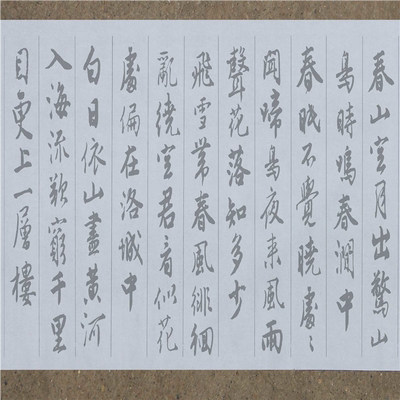 春山空月出驚山
鳥時鳴春澗中
春眠不覺曉處〻
聞啼鳥夜来風雨
聲花落知多少
飛雪帶春風徘徊
亂繞空君看似花
處偏在洛城中
白日依山盡黄河
入海流欲窮千里
目更上一層樓